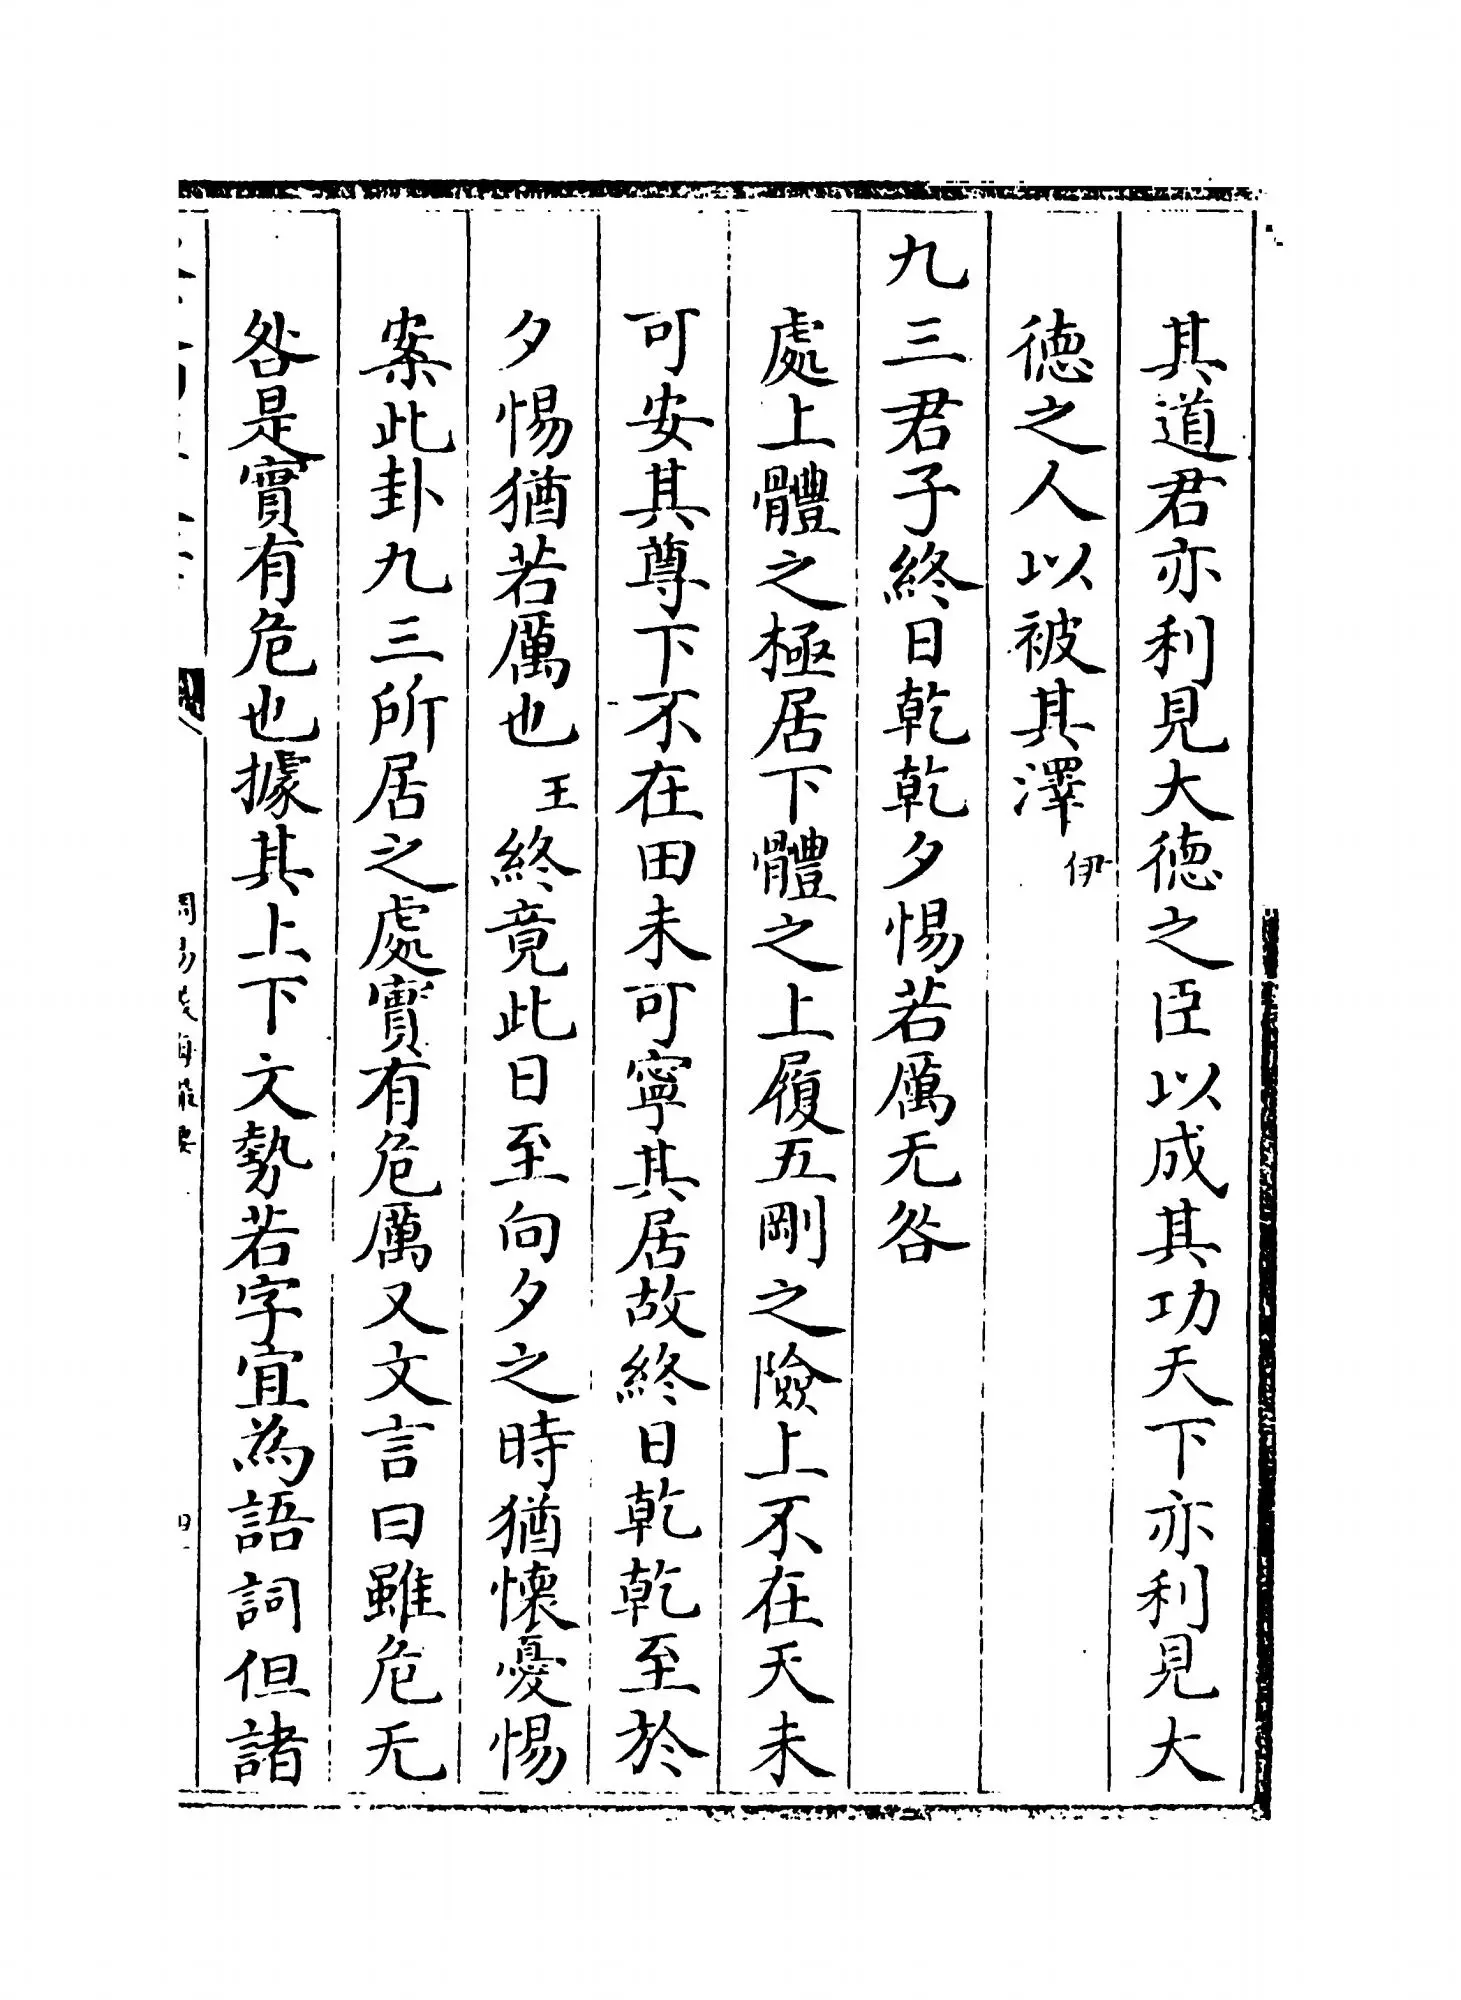 其道君亦利見大德之臣以成其功天下亦利見大
德之人以被其澤伊
九三君子終日乾乾夕惕若厲无咎
處上體之極居下體之上履五剛之險上不在天未
可安其尊下不在田未可寧其居故終日乾乾至於
夕惕猶若厲也王終竟此日至向夕之時猶懷憂惕
案此卦九三所居之處實有危厲又文言曰雖危无
咎是實有危也據其上下文勢若字宜為語詞但諸
周易義海撮要
四